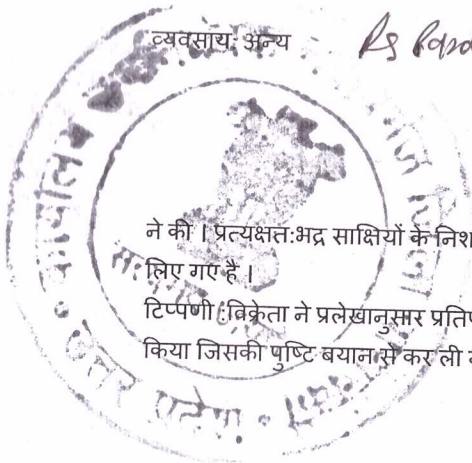 व्यवसाय: अन्य
ने की । प्रत्यक्षत:भद्र साक्षियों के निश
लिए गए है ।
टिप्पणी :विक्रेता ने प्रलेखानुसार प्रतिफ
किया जिसकी पुष्टि बयान से कर ली
कार्यालय
उत्तर प्रदेश